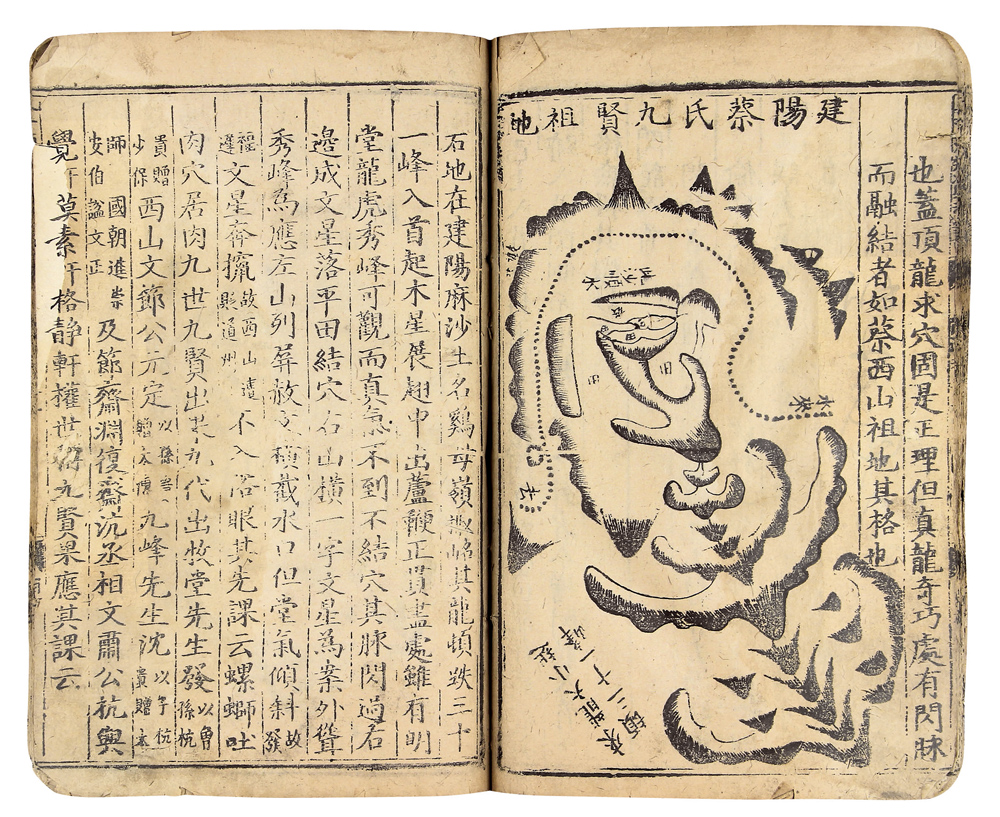 也蓋頂龍求穴固是正理但真龍奇巧處有閃脉
而融結者如蔡西山祖地其格也
建陽蔡氏九賢祖地
水來
田
田
去
石地在建陽麻沙土名鷄母嶺其龍頓跌三十
一峰入首起木星展翅中出蘆鞭正貫盡處雖有明
堂龍虎秀峰可觀而真氣不到不結穴其脉閃過右
邉成文星落平田結穴右山橫一字文星為案外聳
秀峰為應左山列屏赦文橫截水口但堂氣傾斜故發
福遲文星斉攛故西山遭貶道州不入俗眼其先課云螺螄吐
肉穴居肉九世九賢出果九代出牧堂先生發以曾孫杭
貴贈少保西山文節公元定以孫贈太傅九峰先生沈以子杭貴贈太
師國朝進崇安伯謚文正及節齋淵復齋沉丞相文肅公杭與
覺軒莫素軒格靜軒權世稱九賢果應其課云